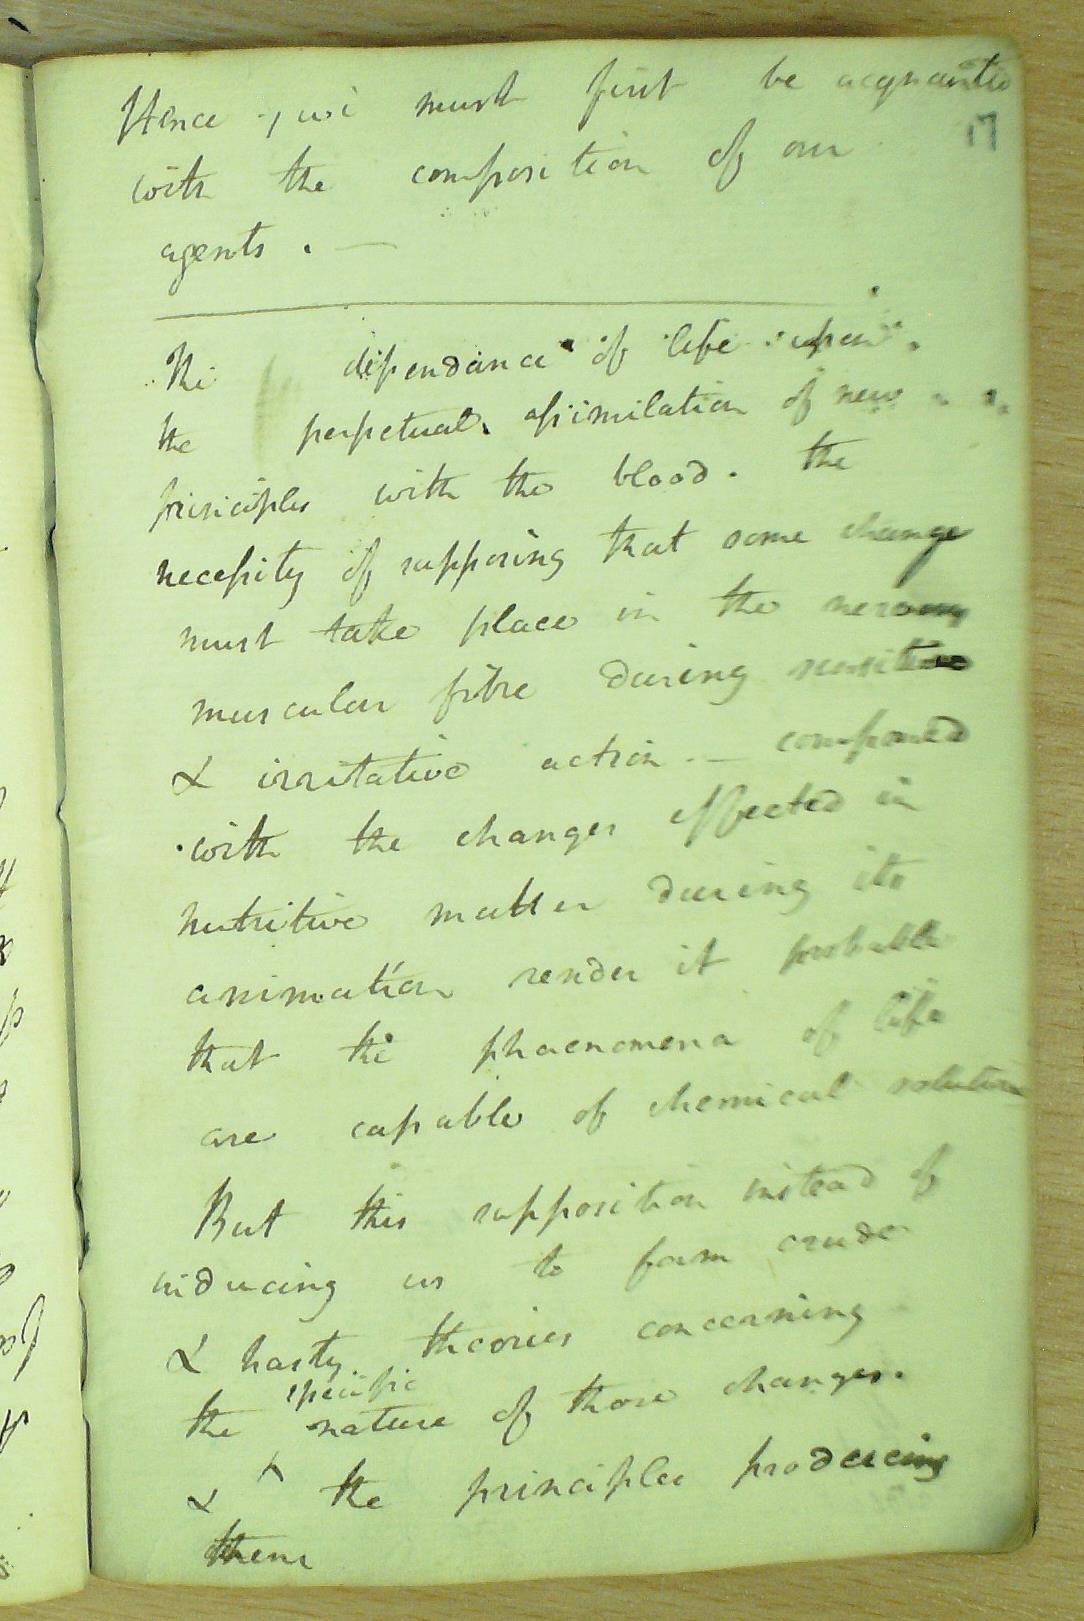 Hence, we must first be acquainted
17
with the composition of our
agents. —
The dependance of life upon
the perpetual assimilation of new
principles with the blood. the
necessity of supposing that some change
must take place in the nervous
muscular fibre during sensitive
& irritative action. — compared
with the changes effected in
nutritive matter during its
animation render it probable
that the phaenomena of life
are capable of chemical solution
But this supposition instead of
inducing us to form crude
& hasty theories concerning
specific
the nature of those changes.
& the principles producing
them